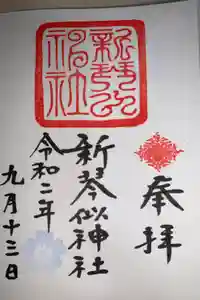 奉拝
新琴似神社
令和二年
九月十三日
新琴似
神社